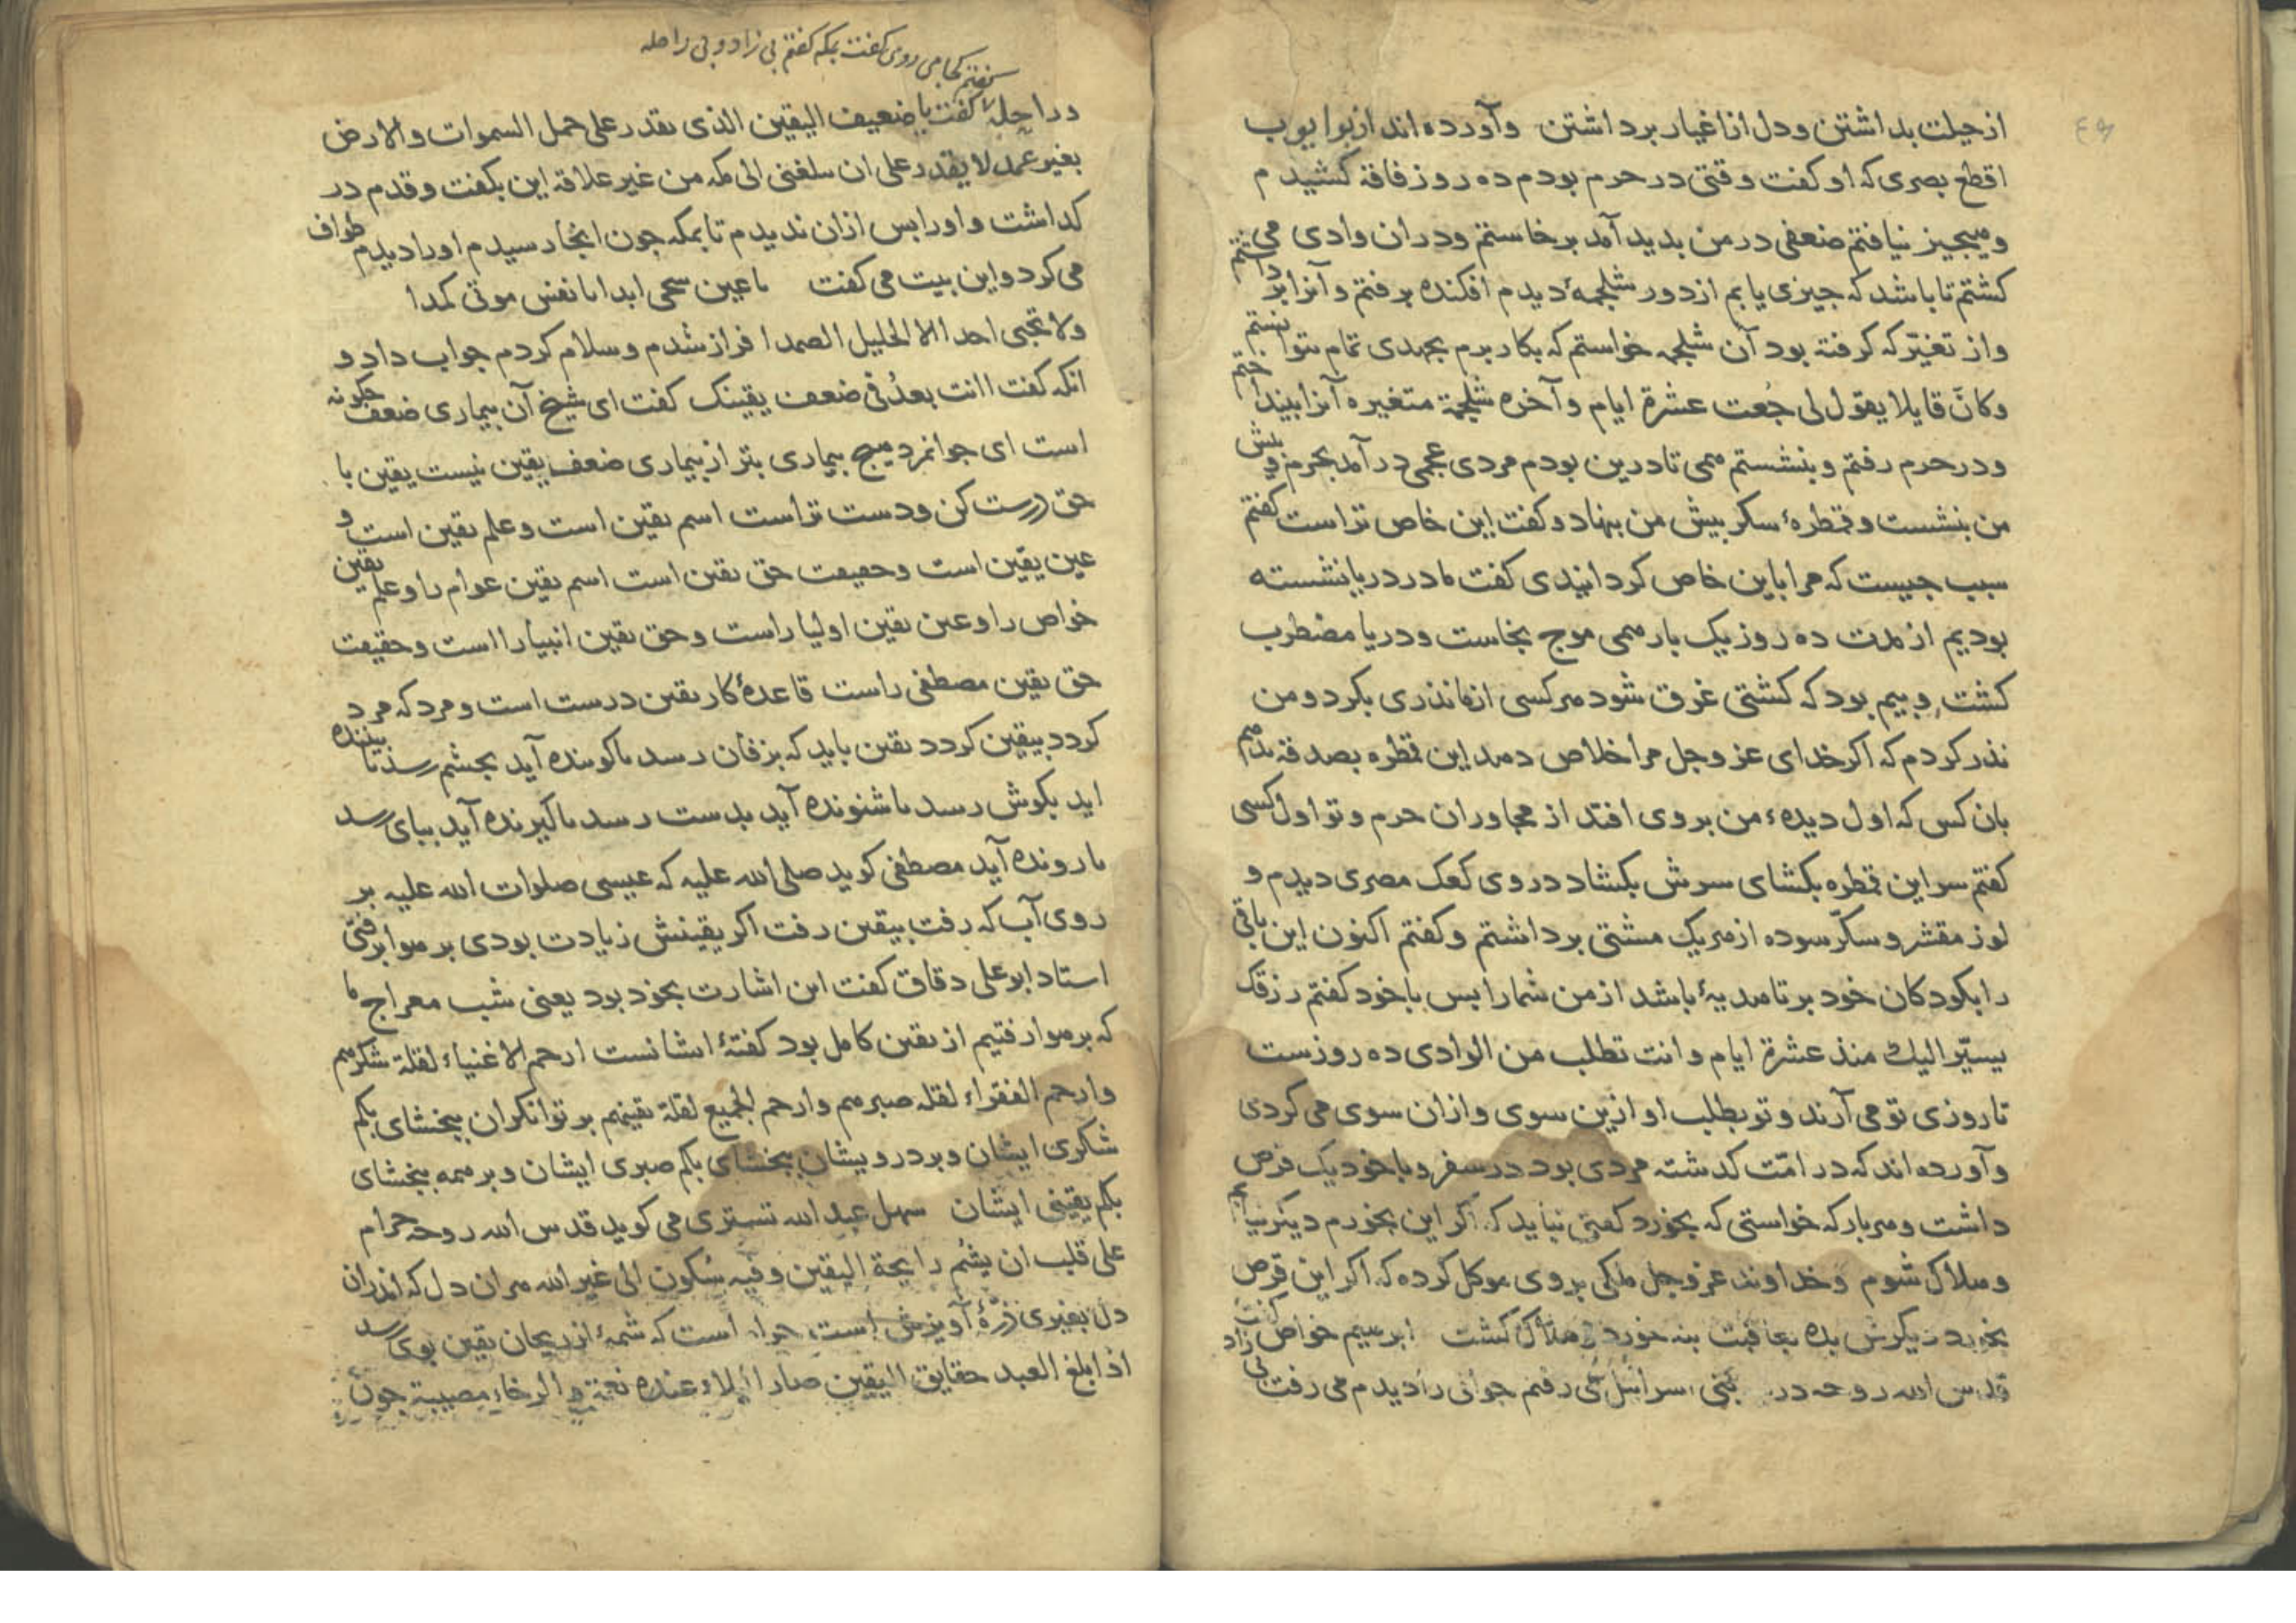 از حیلت بداشتن و دل از اغیار برداشتن وآورده‌اند از بو ایوب
اقطع بصری که او کفت وقتی در حرم بودم ده روز فاقة کشیدم
وهیچیز نیافتم ضعفی در من بدید آمد برخاستم ودران وادی می
کشتم تا باشد که جیزی یابم از دور شلجمهٔ دیدم افکنده برفتم و آنرا برداشتم
واز تغیّر که کرفته بود آن شلجمه خواستم که بکار برم بجهدی تمام نتوانستم
وکانّ قایلا یقول لی جُعت عشرة ایام وآخره شلجمة متغیره آنرا بینداختم
ودر حرم رفتم وبنشستم همی تا درین بودم مردی عجمی درآمد بحرم وبیش
من بنشست وقمطرهٔ سکر بیش من بنهاد وکفت این خاص تراست کفتم
سبب جیست که مرا باین خاص کردانیدی کفت ما در دریا نشسته
بودیم از مدت ده روز یک بار همی موج بخاست ودریا مضطرب
کشت وبیم بود که کشتی غرق شود هرکسی از ما نذری بکرد ومن
نذر کردم که اکر خدای عز وجل مرا خلاص دهد این قمطره بصدقه بدهم
بان کس که اول دیدهٔ من بروی افتد از مجاوران حرم وتو اول کسی
کفتم سر این قمطره بکشای سرش بکشاد در وی کعک مصری دیدم و
لوز مقشر وسکّر سوده از هریک مشتی برداشتم وکفتم اکنون این باقی
را بکودکان خود بر تا هدیهٔ باشد از من شما را بس با خود کفتم رزقک
یسیّر الیک منذ عشرة ایام وانت تطلب من الوادی ده روزست
تا روزی تو می آرند وتو بطلب او ازین سوی وازان سوی می کردی
وآورده‌اند که در امّت کذشته مردی بود در سفر وبا خود یک قرص
داشت وهربار که خواستی که بخورد کفتی نباید که اکر این بخورم دیکر نیابم
وهلاک شوم وخداوند عز وجل ملکی بروی موکل کرده که اکر این قرص
بخورد دیکرش بده بعاقبت بنه خورد وهلاک کشت ابرهیم خواص کفت
قدس الله روحه در بنی اسرائیل می رفتم جوانی را دیدم می رفت بی زاد
کفتم کجا می روی کفت بمکه کفتم بی زاد وبی راحله
وراحلهٔ کفت یا ضعیف الیقین الذی یقدر علی حمل السموات والارض
بغیر عمد لا یقدر علی ان یبلغنی الی مکه من غیر علاقة این بکفت وقدم در
کداشت واورا بس ازان ندیدم تا بمکه جون انجا رسیدم اورا دیدم طواف
می کرد واین بیت می کفت یا عین سحی ابدا یا نفس موتی کمدا
ولا تحبی احدا الا الجلیل الصمدا فراز شدم وسلام کردم جواب داد و
انکه کفت اانت بعدُ فی ضعف یقینک کفت ای شیخ آن بیماری ضعف جکونه
است ای جوانمرد هیچ بیماری بتر از بیماری ضعف یقین نیست یقین با
حق درست کن ودست تراست اسم یقین است وعلم یقین است و
عین یقین است وحقیقت حق یقین است اسم یقین عوام را وعلم یقین
خواص را وعین یقین اولیا راست وحق یقین انبیا را است وحقیقت
حق یقین مصطفی راست قاعدهٔ کار یقین درست است ومرد که مرد
کردد بیقین کردد یقین باید که بزفان رسد تا کوینده آید بجشم رسد تا بیننده
اید بکوش رسد تا شنونده آید بدست رسد تا کیرنده آید ببای رسد
تا رونده آید مصطفی کوید صلی الله علیه که عیسی صلوات الله علیه بر
روی آب که رفت بیقین رفت اکر یقینش زیادت بودی بر هوا برفتی
استاد ابو علی دقاق کفت این اشارت بخود بود یعنی شب معراج ما
که بر هوا رفتیم از یقین کامل بود کفتهٔ ایشانست ارحم الاغنیاء لقلة شکرهم
وارحم الفقراء لقلة صبرهم وارحم الجمیع لقلة یقینهم بر توانکران ببخشای بکم
شکری ایشان وبر درویشان ببخشای بکم صبری ایشان وبر همه ببخشای
بکم یقینی ایشان سهل عبد الله تستری می کوید قدس الله روحه حرام
علی قلب ان یشُم رایحة الیقین وفیه سُکون الی غیر الله هران دل که اندران
دل بغیری ذرّهٔ آویزش است حرام است که شمهٔ از ریحان یقین بوی رسد
اذا بلغ العبد حقایق الیقین صار البلاء عنده نعمة والرخاء مصیبة جون